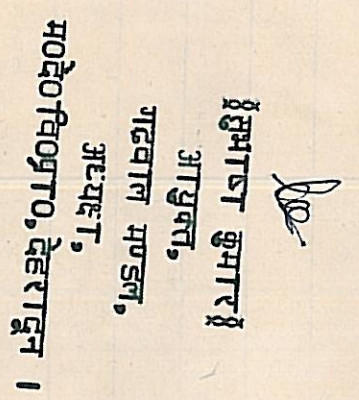 (सुभाष कुमार)
आयुक्त,
गढवाल मण्डल,
अध्यक्ष,
म०दे०वि०प्रा०, देहरादून ।